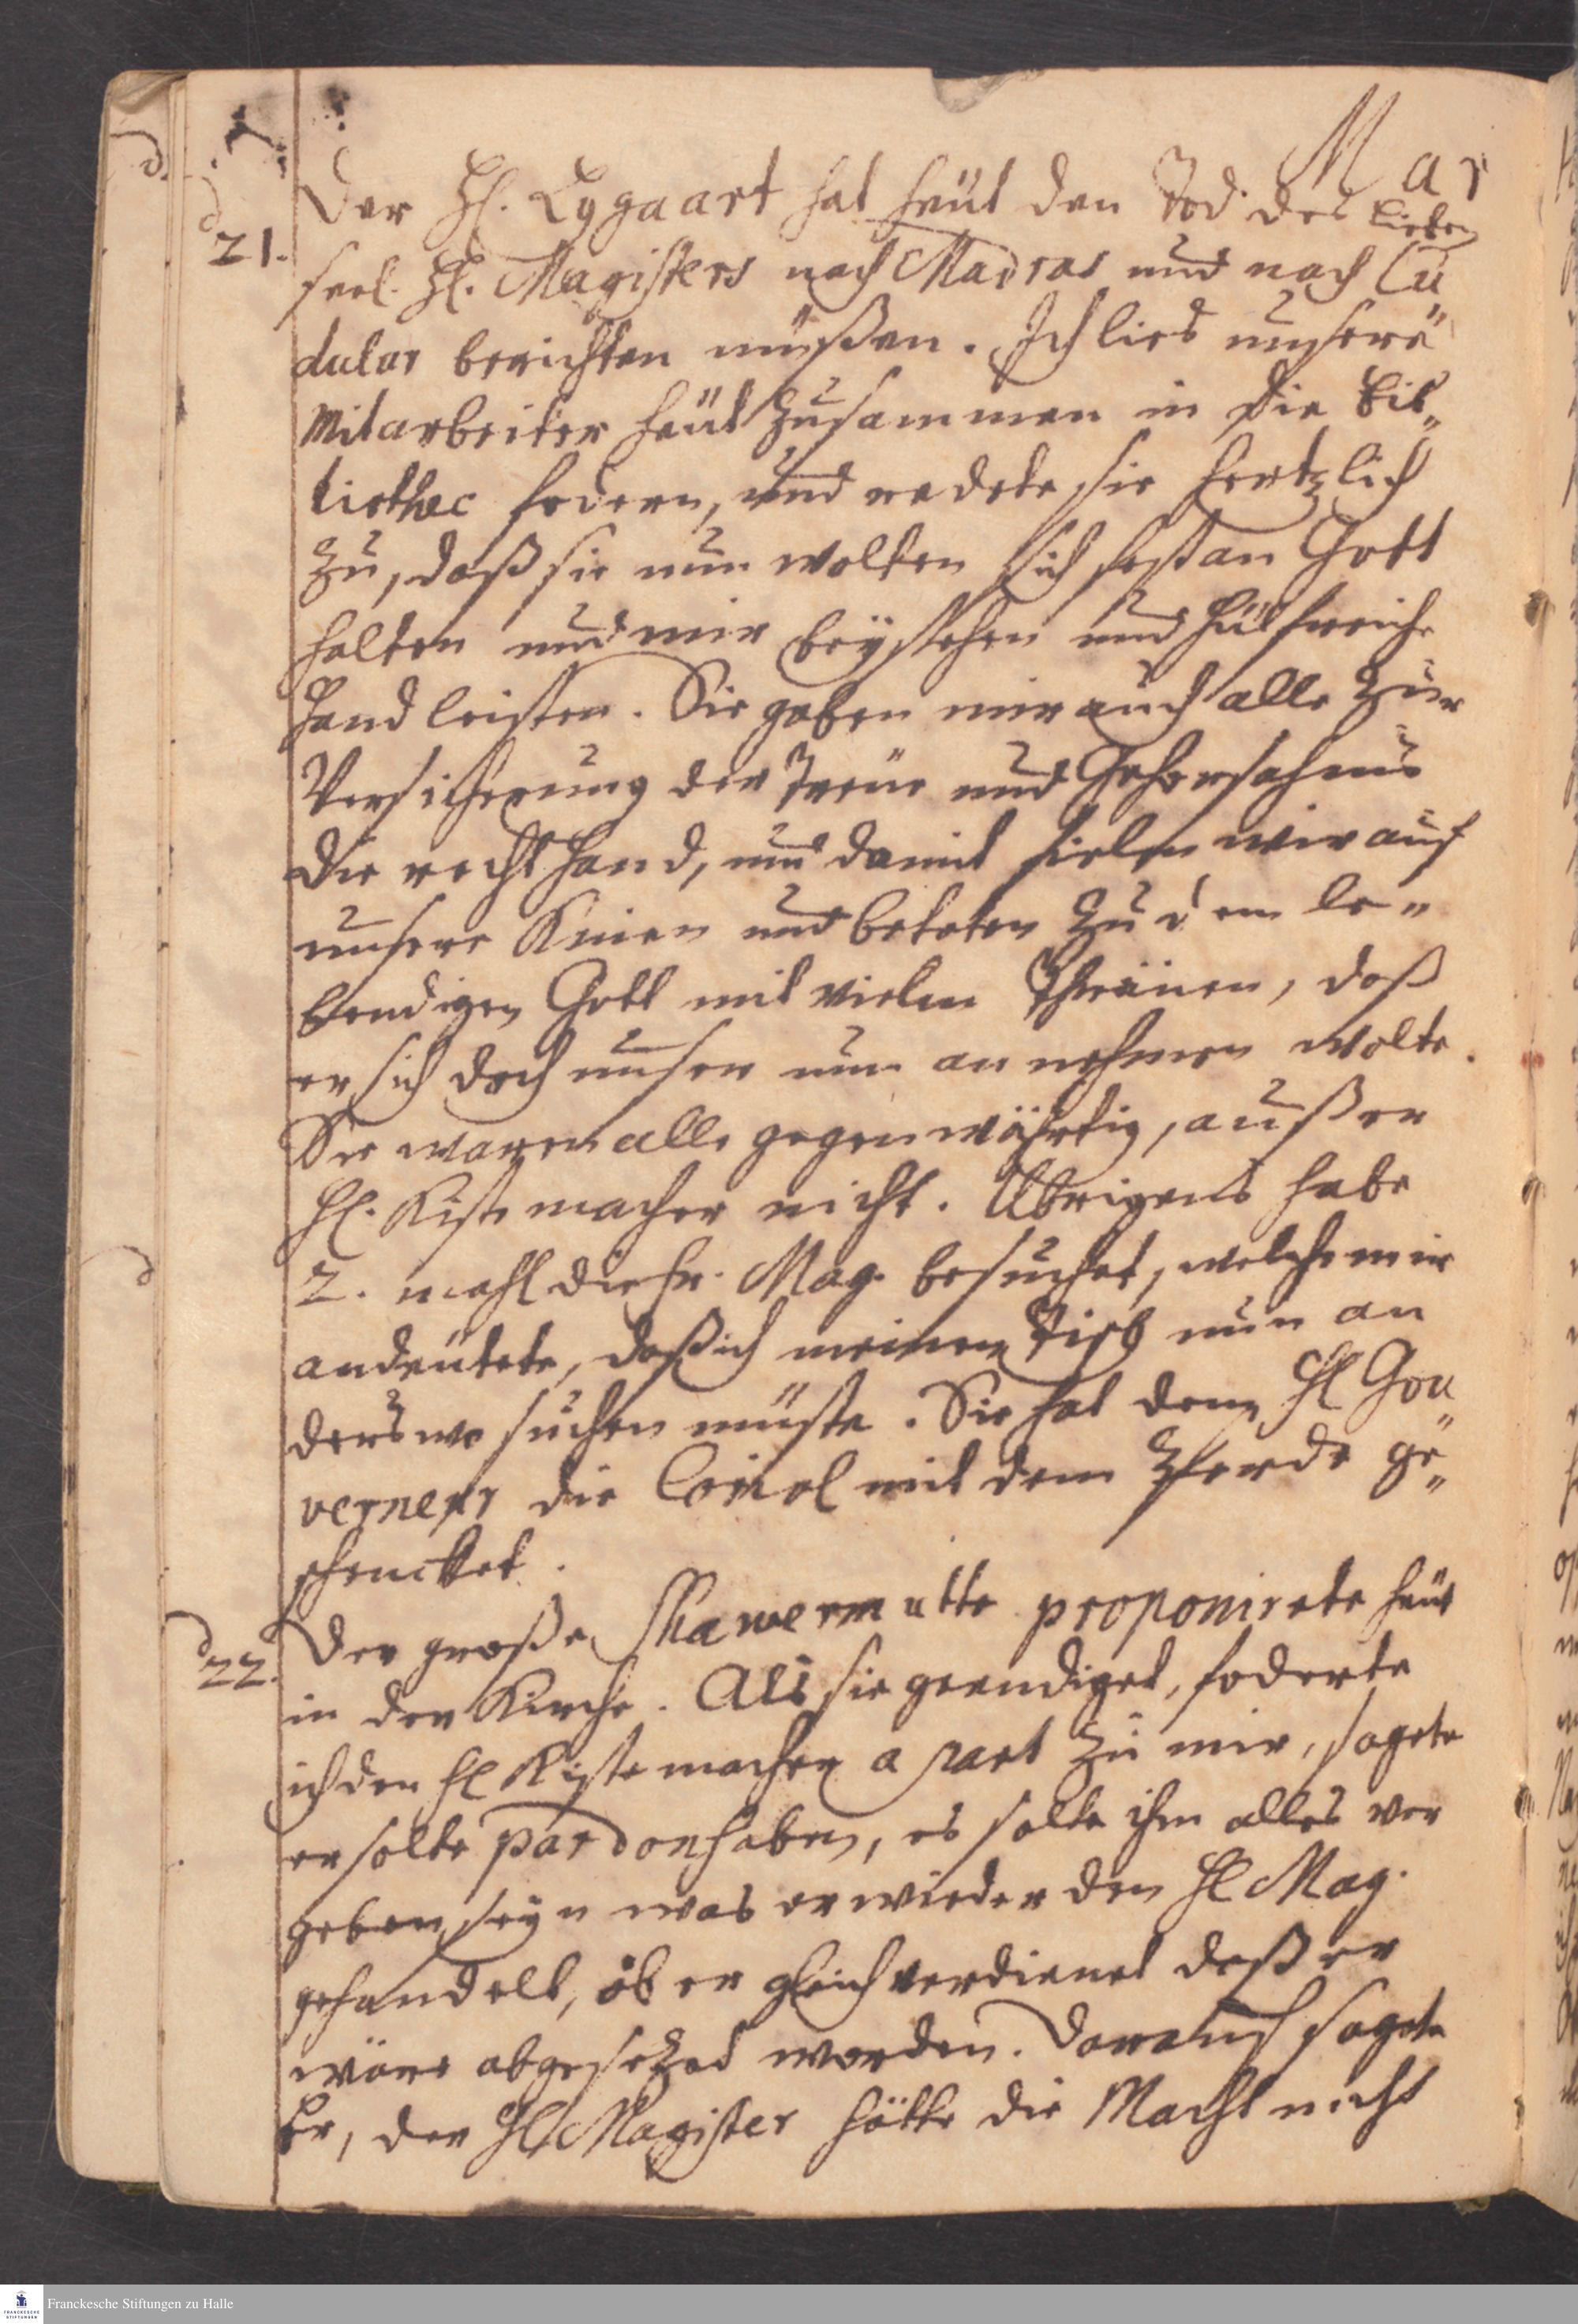 Mar
d 21. Der H. Lygaart hat heut den Tod des lieben
seel. H. Magisters nach Madras und nach Cu
dulur berichten müßen. Ich lies unsere
Mitarbeiter heut zusammen in die Bib„
liothec fodern, und redete sie hertzlich
zu, daß sie nun wolten sich fest an Gott
halten und mir beystehen und hülfreiche
Hand leisten. Sie gaben mir auch alle zur
Versicherung der Treue und Gehorsahms
die recht Hand, und damit fielen wir auf
unsere Knien und beteten zu dem le„
bendigen Gott mit vielen Thränen, daß
er sich doch unser nun an nehmen wolte.
Sie waren alle gegenwährtig, außer
H. Kistemacher nicht. Übrigens habe
2. mahl die Fr. Mag. besuchet, welche mir
andeutete, daß ich meinen Tisch nun an
derswo suchen müste. Sie hat dem H Gou
verneur die mit dem Pferde ge„
schencket.
d 22. Der große proponirete heut
in der Kirche. Als sie geendiget, foderte
ich den H Kistemacher a part zu mir, sagete
er solte pardon haben, es solte ihm alles ver
geben seyn was er wieder den H Mag.
gehandelt, ob er gleich verdienet daß er
wäre abgesetzet worden. Darauf sagete
Er, der H Magister hätte die Macht nicht
Franckesche Stiftungen zu Halle